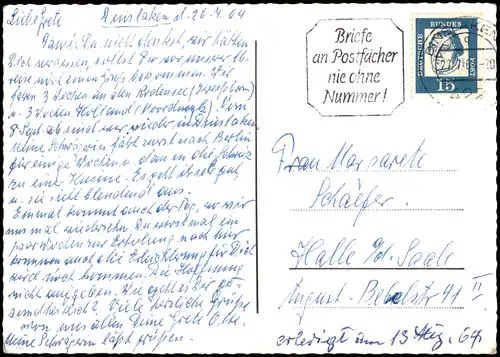 Liebe Grete Dinslaken d. 26.7.64
Damit Du nicht denkst, wir hätten
Dich vergessen, sollst Du vor unserer
Reise noch einen Gruß bekommen. Wir
fahren 3 Wochen an den Bodensee
u. 3 Wochen Holland (Nordwyk). Vom
8. Sept. ab sind wir wieder in Dinslaken
Meine Schwägerin fährt erst nach Berlin
für einige Wochen u. dann in die Schweiz
zu einer Kusine. Es geht ihr sehr gut
u. sie sieht blendend aus.
Einmal kommt auch der Tag, wo wir
uns mal wiedersehn. Du wirst mal ein
paar Wochen zur Erholung nach hier
kommen auch die Erleichterung für Dich
wird noch kommen. Die Hoffnung
nicht aufgeben. Wie geht es Dir ge-
sundheitlich? Viele herzliche Grüße
von uns allen Deine Grete O.
Meine Schwägerin läßt grüßen.
Briefe
an Postfächer
nie ohne
Nummer!
DEUTSCHE
BUNDESPOST
15
Frau Margarete
Schäefer
Halle a/d. Saale
August-Bebelstr 41 II
erledigt am 13. Aug. 64